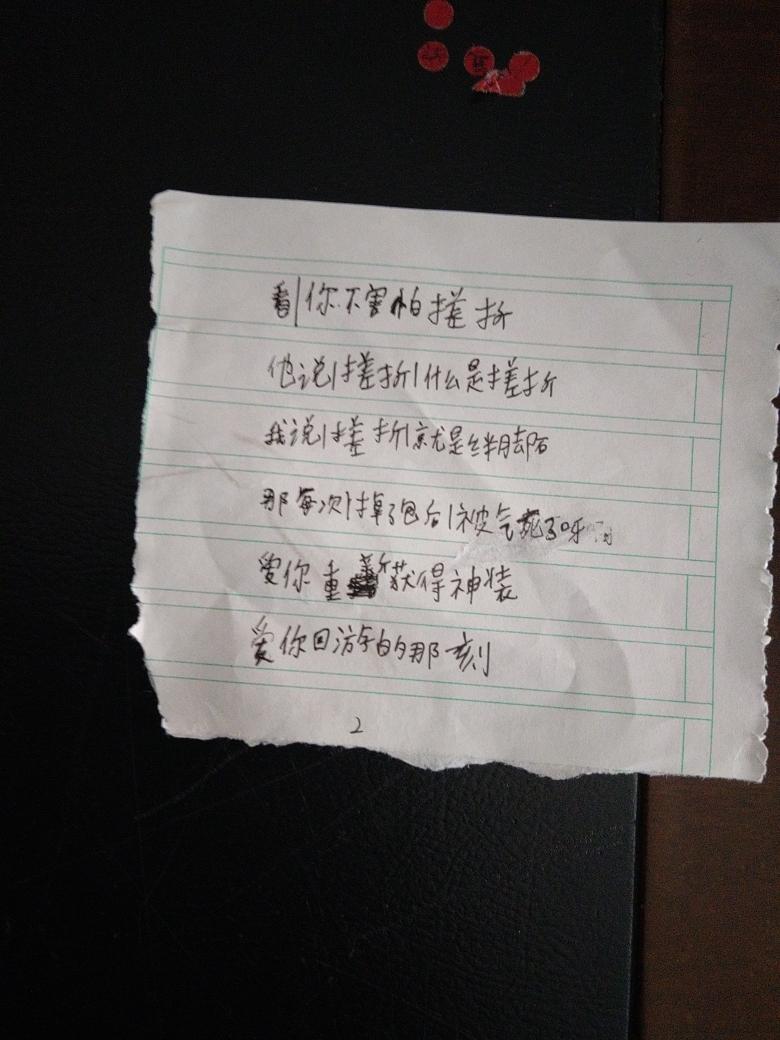 看|你不害怕搓折
他说|搓折|什么是搓折
我说|搓折|就是绊脚石
那每次|掉了包后|被气死了呀
爱你重新获得神装
爱你回游的那一刻
2